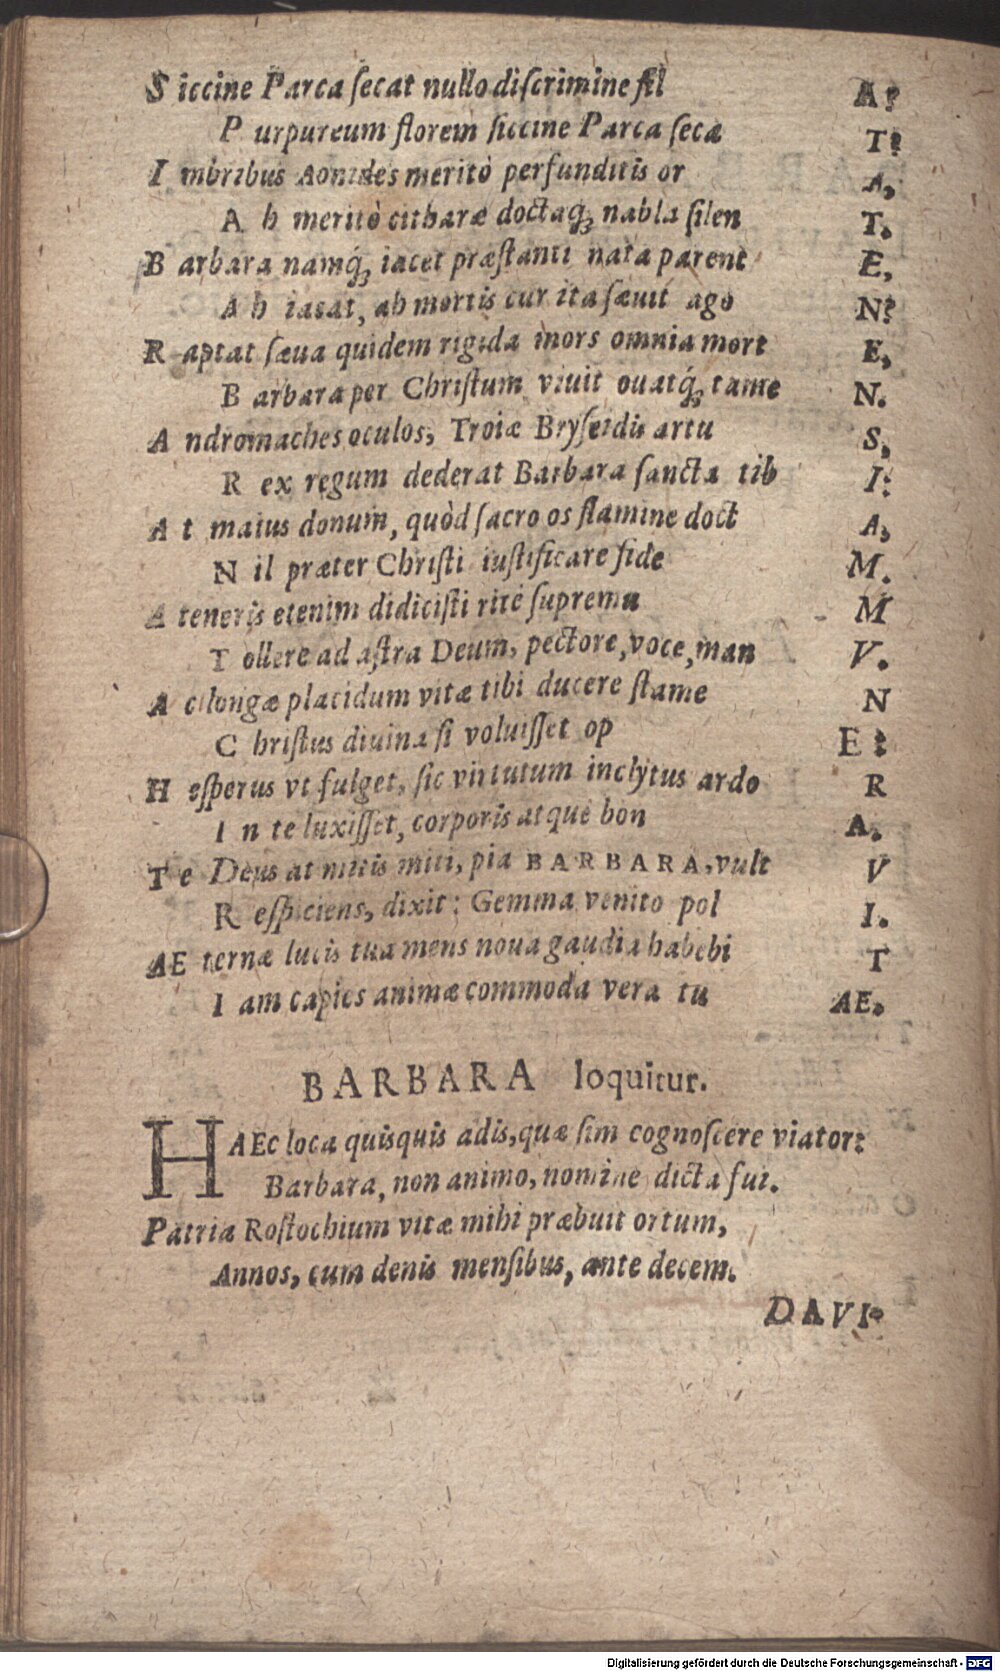 S iccine Parca ſecat nullo diſcrimine fil A?
P urpureum florem ſiccine Parca ſeca T?
I mbribus Aonides meritò perfunditis or A,
A h meritò citharæ doctaq́; nabla ſilen T.
B arbara namq́; iacet præſtanti nata parent E,
A h iacat, ah mortis cur ita ſæuit ago N?
R aptat ſæua quidem rigida mors omnia mort E,
B arbara per Chriſtum viuit ouatq́; tame N.
A ndromaches oculos, Troiæ Bryſeidis artu S,
R ex regum dederat Barbara ſancta tib I:
A t maius donum, quòd ſacro os flamine doct A,
N il præter Chriſti iuſtificare fide M.
A teneris etenim didiciſti ritè ſupremu M
T ollere ad aſtra Deum, pectore, voce, man V.
A c longæ placidum vitæ tibi ducere ſtame N
C hriſtus diuina ſi voluiſſet op E:
H eſperus vt fulget, ſic virtutum inclytus ardo R
I n te luxiſſet, corporis atque bon A.
T e Deus at mitis miti, pia BARBARA, vult V
R eſpiciens, dixit: Gemma venito pol I.
AE ternæ lucis tua mens noua gaudia habebi T
I am capies animæ commoda vera tu AE.
BARBARA loquitur.
HAEc loca quisquis adis, quæ ſim cognoſcere viator:
Barbara, non animo, nomine dicta fui.
Patria Roſtochium vitæ mihi præbuit ortum,
Annos, cum denis menſibus, ante decem.
DAVI-
Digitalisierung gefördert durch die Deutsche Forschungsgemeinschaft - DFG